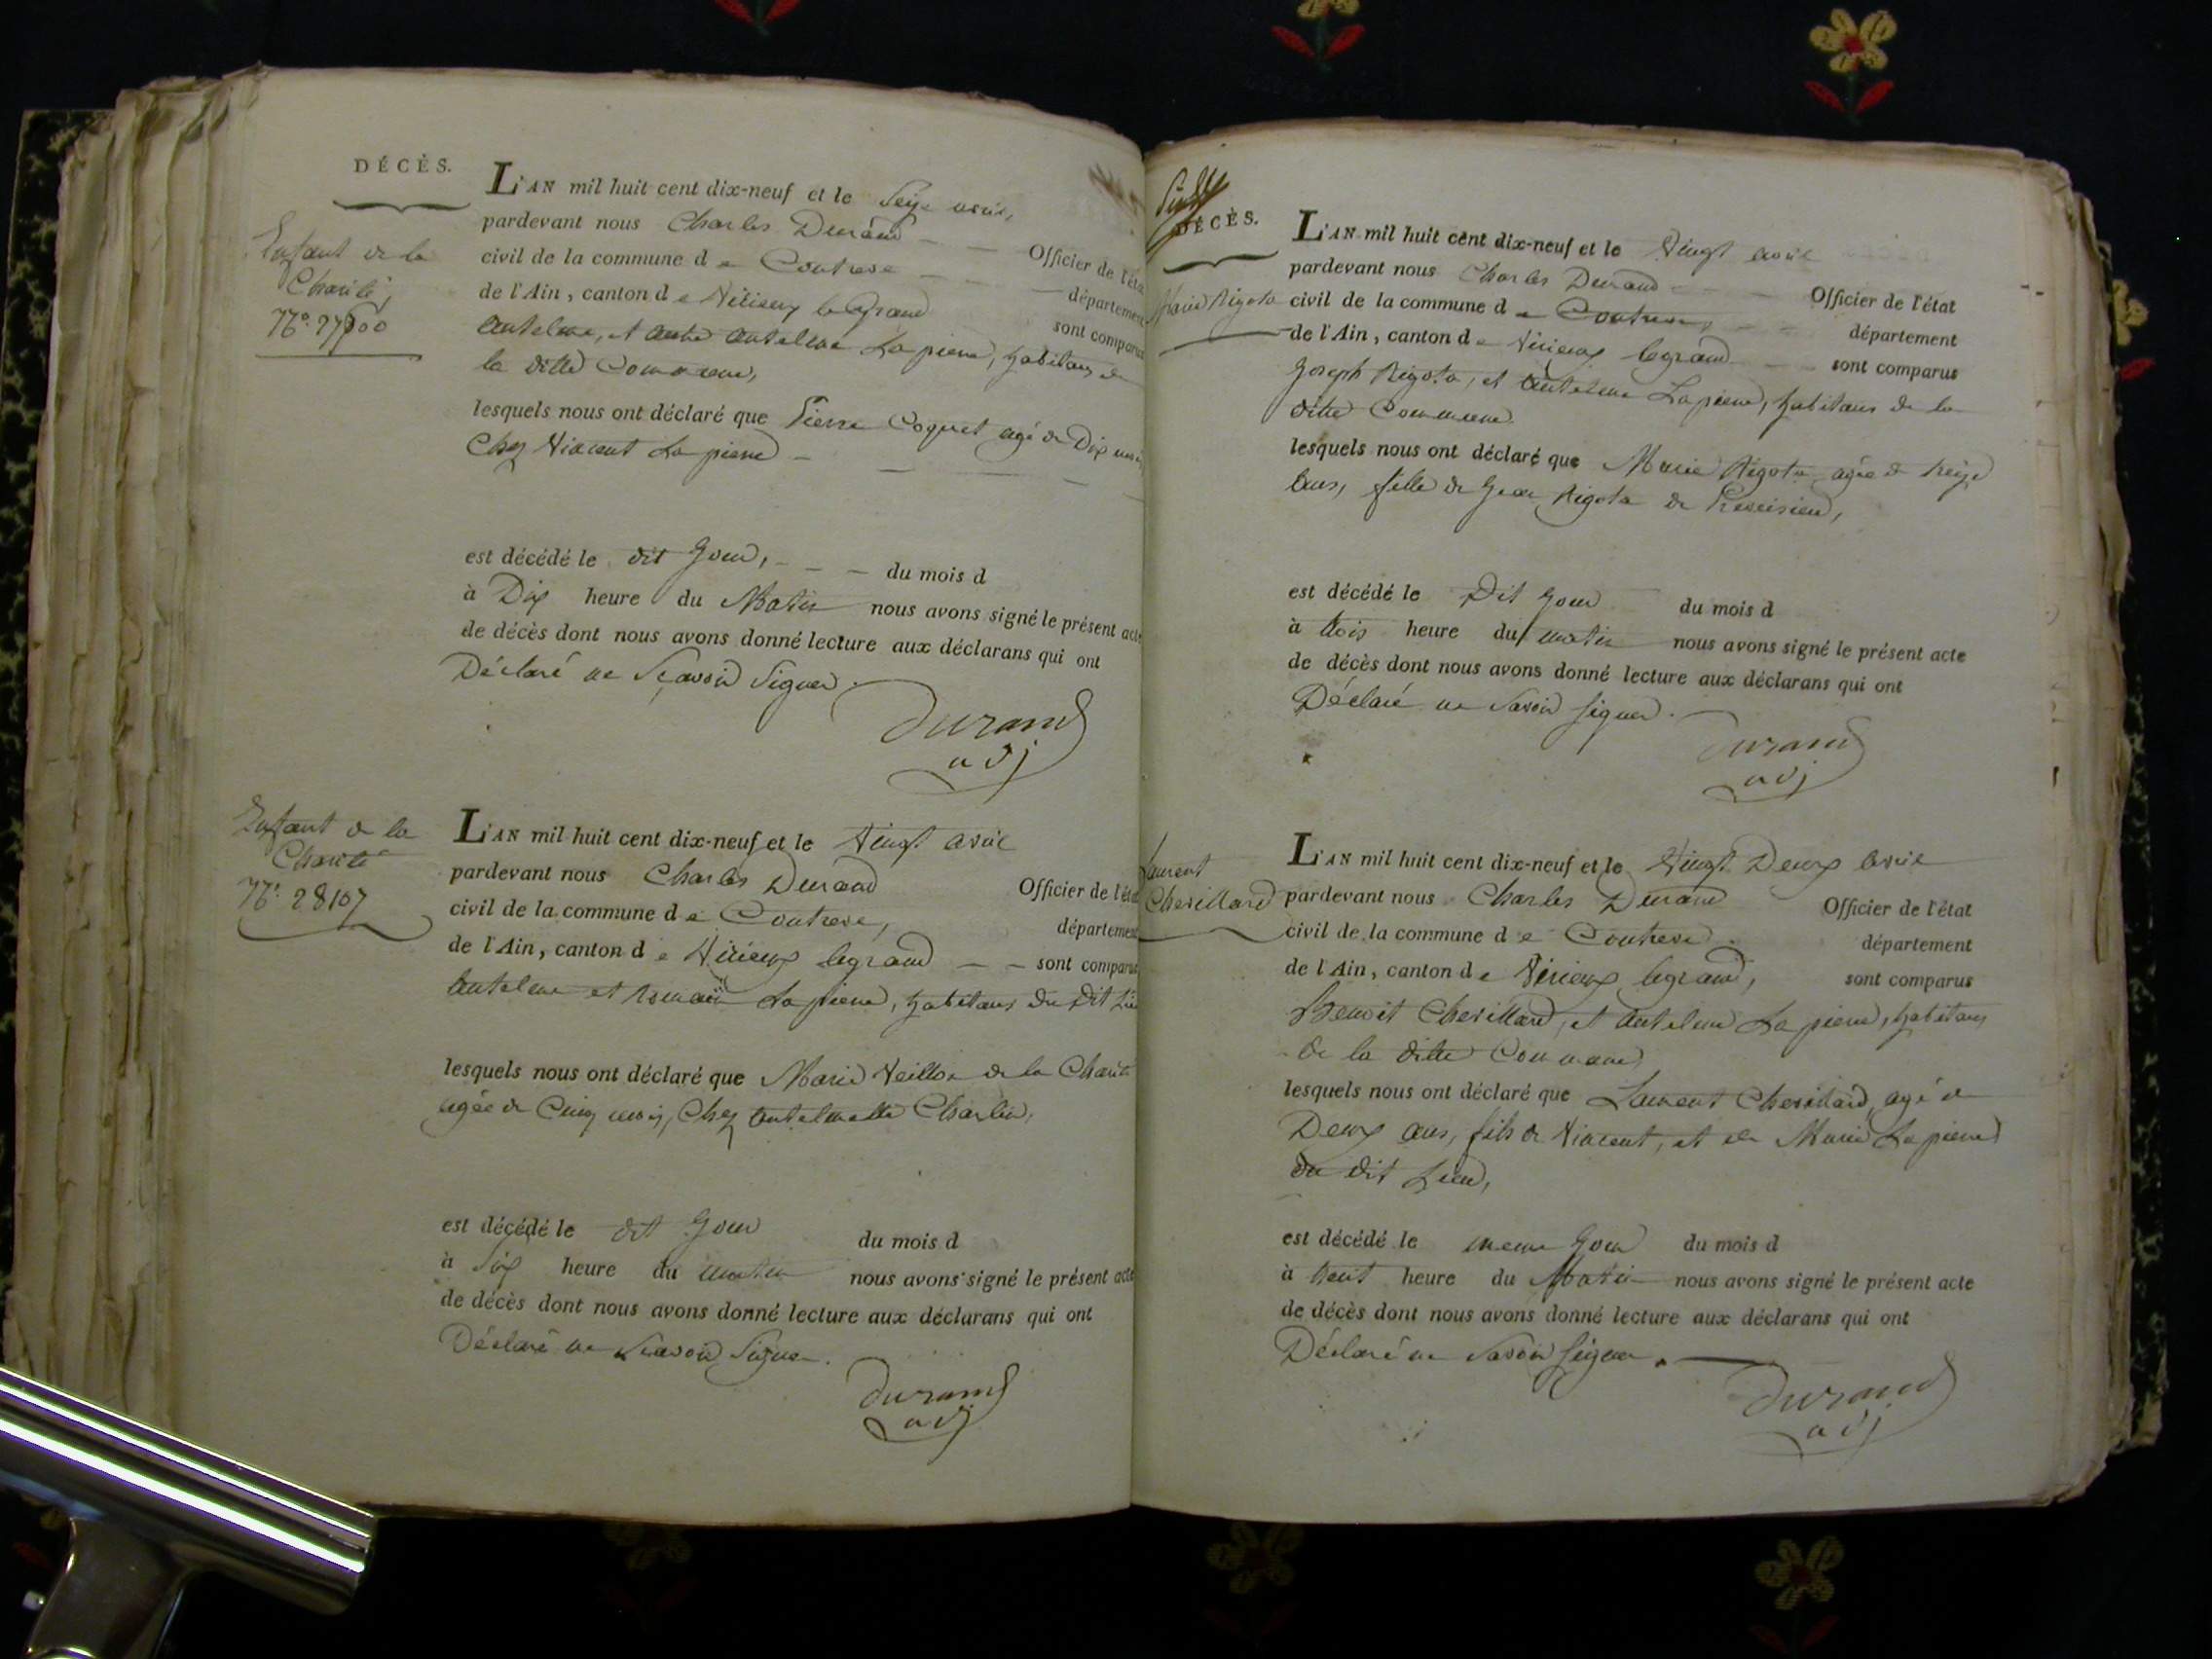 DÉCÈS.
Enfant de la
Charité,
N.o 27900
L'AN mil huit cent dix-neuf et le Seize avril,
pardevant nous Charles Durand Officier de l'état
civil de la commune de Contrevoz département
de l'Ain, canton de Virieux le Grand sont comparus
antelme, et autre antelme Lapierre, habitans de
la ditte Commune,
lesquels nous ont déclaré que Pierre Coquet agé de Dix mois
Chez Vincent Lapierre
est décédé le dit Jour, du mois d
à Dix heure du Matin nous avons signé le présent acte
de décès dont nous avons donné lecture aux déclarans qui ont
Déclaré ne Sçavoir Signer.
Durand
adj
Enfant de la
Charité
N.o 28107
L'AN mil huit cent dix-neuf et le Vingt avril
pardevant nous Charles Durand Officier de l'état
civil de la commune de Contrevoz, département
de l'Ain, canton de Virieux legrand sont comparus
antelme et Romain Lapierre, habitans du dit Lieu
lesquels nous ont déclaré que Marie Veillon de la Charité
agée de Cinq mois, Chez antelmette Charlin,
est décédé le dit Jour du mois d
à Six heure du matin nous avons signé le présent acte
de décès dont nous avons donné lecture aux déclarans qui ont
Déclaré ne Scavoir Signer.
Durand
adj
DÉCÈS.
Marie Rigota
L'AN mil huit cent dix-neuf et le Vingt avril
pardevant nous Charles Durand Officier de l'état
civil de la commune de Contrevoz, département
de l'Ain, canton de Virieux legrand sont comparus
Joseph Rigota, et antelme Lapierre, habitans de la
ditte Commune.
lesquels nous ont déclaré que Marie Rigota agée de treize
ans, fille de Jean Rigota de
est décédé le Dit Jour du mois d
à trois heure du matin nous avons signé le présent acte
de décès dont nous avons donné lecture aux déclarans qui ont
Déclaré ne Savoir signer.
Durand
adj
Laurent
Chevillard
L'AN mil huit cent dix-neuf et le Vingt Deux avril
pardevant nous Charles Durand Officier de l'état
civil de la commune de Contrevoz département
de l'Ain, canton de Virieux legrand, sont comparus
Benoit Chevillard, et antelme Lapierre, habitans
de la ditte Commune
lesquels nous ont déclaré que Laurent Chevillard, agé de
Deux ans, fils de Vincent, et de Marie Lapierre
du dit Lieu,
est décédé le meme Jour du mois d
à heure du Matin nous avons signé le présent acte
de décès dont nous avons donné lecture aux déclarans qui ont
Déclaré ne Savoir signer.
Durand
adj